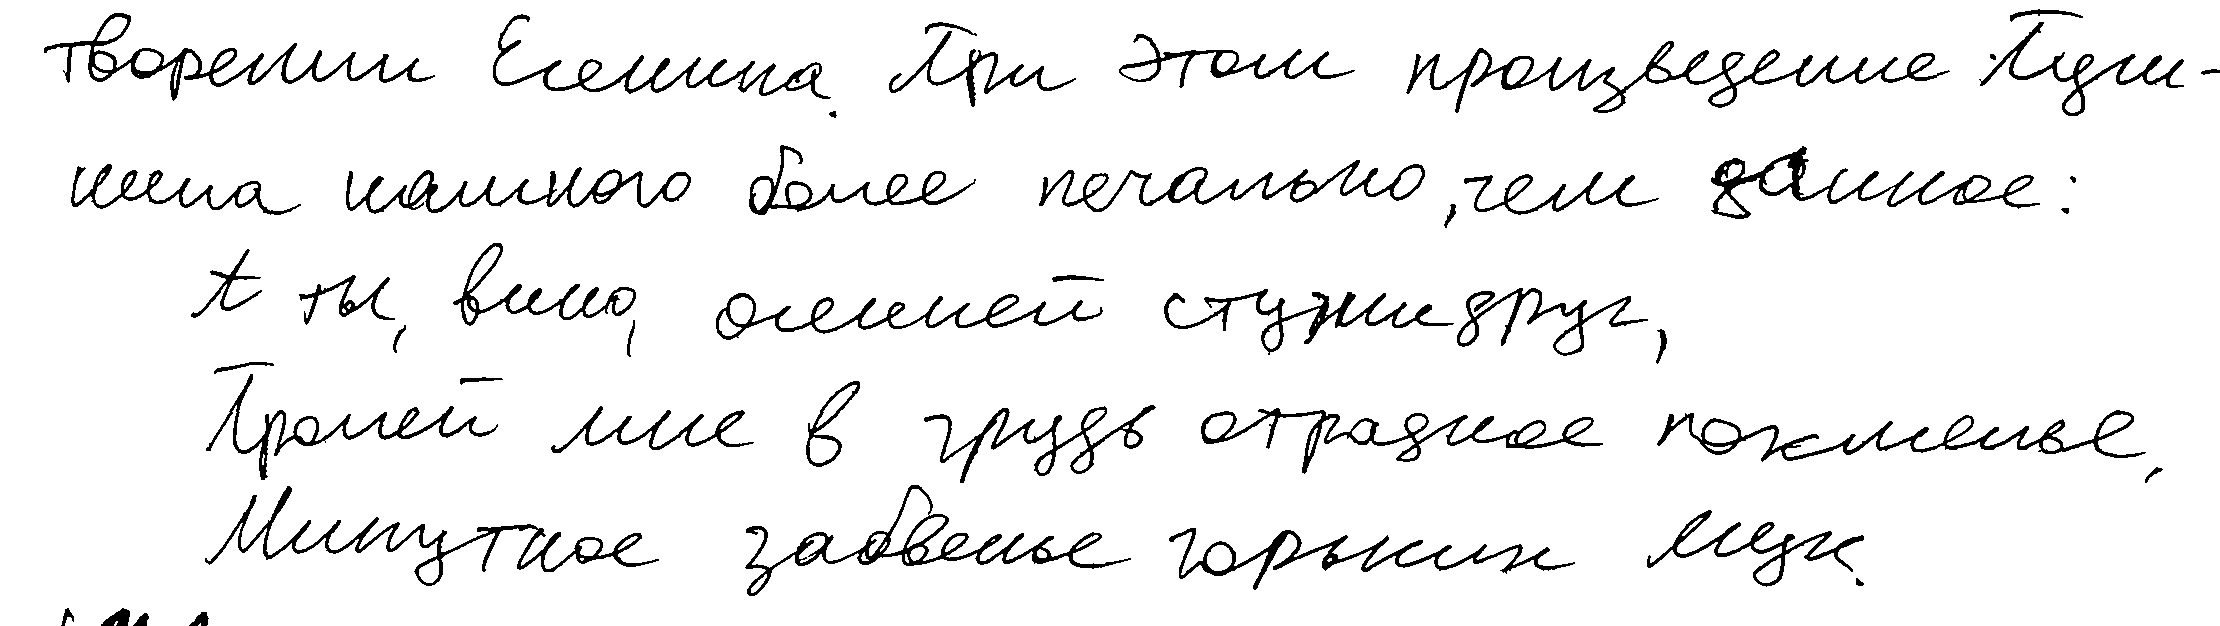 творении Есенина. При этом произведение Пуш-
кина намного более печально, чем данное:
А ты, вино, осенней стужи друг,
Пролей мне в грудь отрадное похмелье,
Минутное забвенье горьких мук.